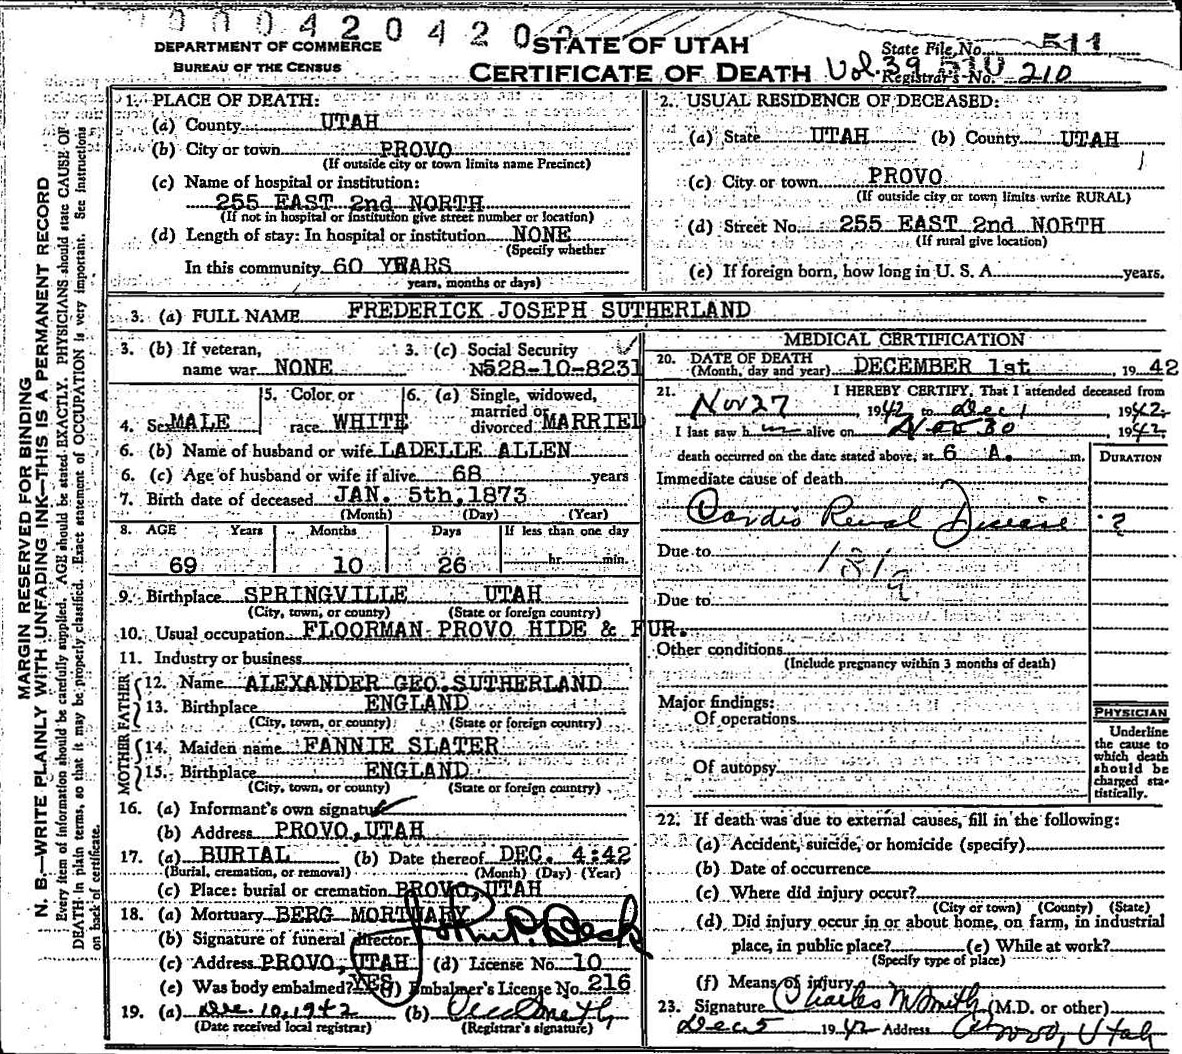 0 0 0 4 2 0 4 2 0
DEPARTMENT OF COMMERCE
BUREAU OF THE CENSUS
STATE OF UTAH
CERTIFICATE OF DEATH
Vol. 39
State File No. 511
Registrar's No. 210
MARGIN RESERVED FOR BINDING
N. B.—WRITE PLAINLY WITH UNFADING INK—THIS IS A PERMANENT RECORD
Every item of information should be carefully supplied. AGE should be stated EXACTLY. PHYSICIANS should state CAUSE OF
DEATH in plain terms, so that it may be properly classified. Exact statement of OCCUPATION is very important. See instructions
on back of certificate.
1. PLACE OF DEATH:
(a) County UTAH
(b) City or town PROVO
(If outside city or town limits name Precinct)
(c) Name of hospital or institution:
255 EAST 2nd NORTH
(If not in hospital or institution give street number or location)
(d) Length of stay: In hospital or institution NONE
(Specify whether
In this community 60 YEARS
years, months or days)
2. USUAL RESIDENCE OF DECEASED:
(a) State UTAH (b) County UTAH
(c) City or town PROVO
(If outside city or town limits write RURAL)
(d) Street No. 255 EAST 2nd NORTH
(If rural give location)
(e) If foreign born, how long in U. S. A. years.
3. (a) FULL NAME FREDERICK JOSEPH SUTHERLAND
3. (b) If veteran, name war NONE
3. (c) Social Security No. 528-10-8231
4. Sex MALE
5. Color or race WHITE
6. (a) Single, widowed, married or divorced MARRIED
6. (b) Name of husband or wife LADELLE ALLEN
6. (c) Age of husband or wife if alive 68 years
7. Birth date of deceased JAN. 5th, 1873
(Month) (Day) (Year)
8. AGE Years Months Days If less than one day
69 10 26 hr. min.
9. Birthplace SPRINGVILLE UTAH
(City, town, or county) (State or foreign country)
10. Usual occupation FLOORMAN PROVO HIDE & FUR.
11. Industry or business
FATHER
12. Name ALEXANDER GEO. SUTHERLAND
13. Birthplace ENGLAND
(City, town, or county) (State or foreign country)
MOTHER
14. Maiden name FANNIE SLATER
15. Birthplace ENGLAND
(City, town, or county) (State or foreign country)
16. (a) Informant's own signature
(b) Address PROVO, UTAH
17. (a) BURIAL (b) Date thereof DEC. 4:42
(Burial, cremation, or removal) (Month) (Day) (Year)
(c) Place: burial or cremation PROVO, UTAH
18. (a) Mortuary BERG MORTUARY
(b) Signature of funeral director
(c) Address PROVO, UTAH (d) License No. 10
(e) Was body embalmed? YES (f) Embalmer's License No. 216
19. (a) Dec. 10, 1942 (b) Smith
(Date received local registrar) (Registrar's signature)
MEDICAL CERTIFICATION
20. DATE OF DEATH
(Month, day and year) DECEMBER 1st 19 42
21. I HEREBY CERTIFY, That I attended deceased from
Nov 27, 1942 to Dec 1, 1942
I last saw h im alive on Nov 30 1942
death occurred on the date stated above, at 6 A. m.
DURATION
Immediate cause of death
Cardio Renal Disease ?
Due to 131a
Due to
Other conditions
(Include pregnancy within 3 months of death)
Major findings:
Of operations
Of autopsy
PHYSICIAN
Underline the cause to which death should be charged statistically.
22. If death was due to external causes, fill in the following:
(a) Accident, suicide, or homicide (specify)
(b) Date of occurrence
(c) Where did injury occur?
(City or town) (County) (State)
(d) Did injury occur in or about home, on farm, in industrial
place, in public place? (e) While at work?
(Specify type of place)
(f) Means of injury
23. Signature Charles M Smith (M.D. or other)
Dec 5 1942 Address Provo, Utah